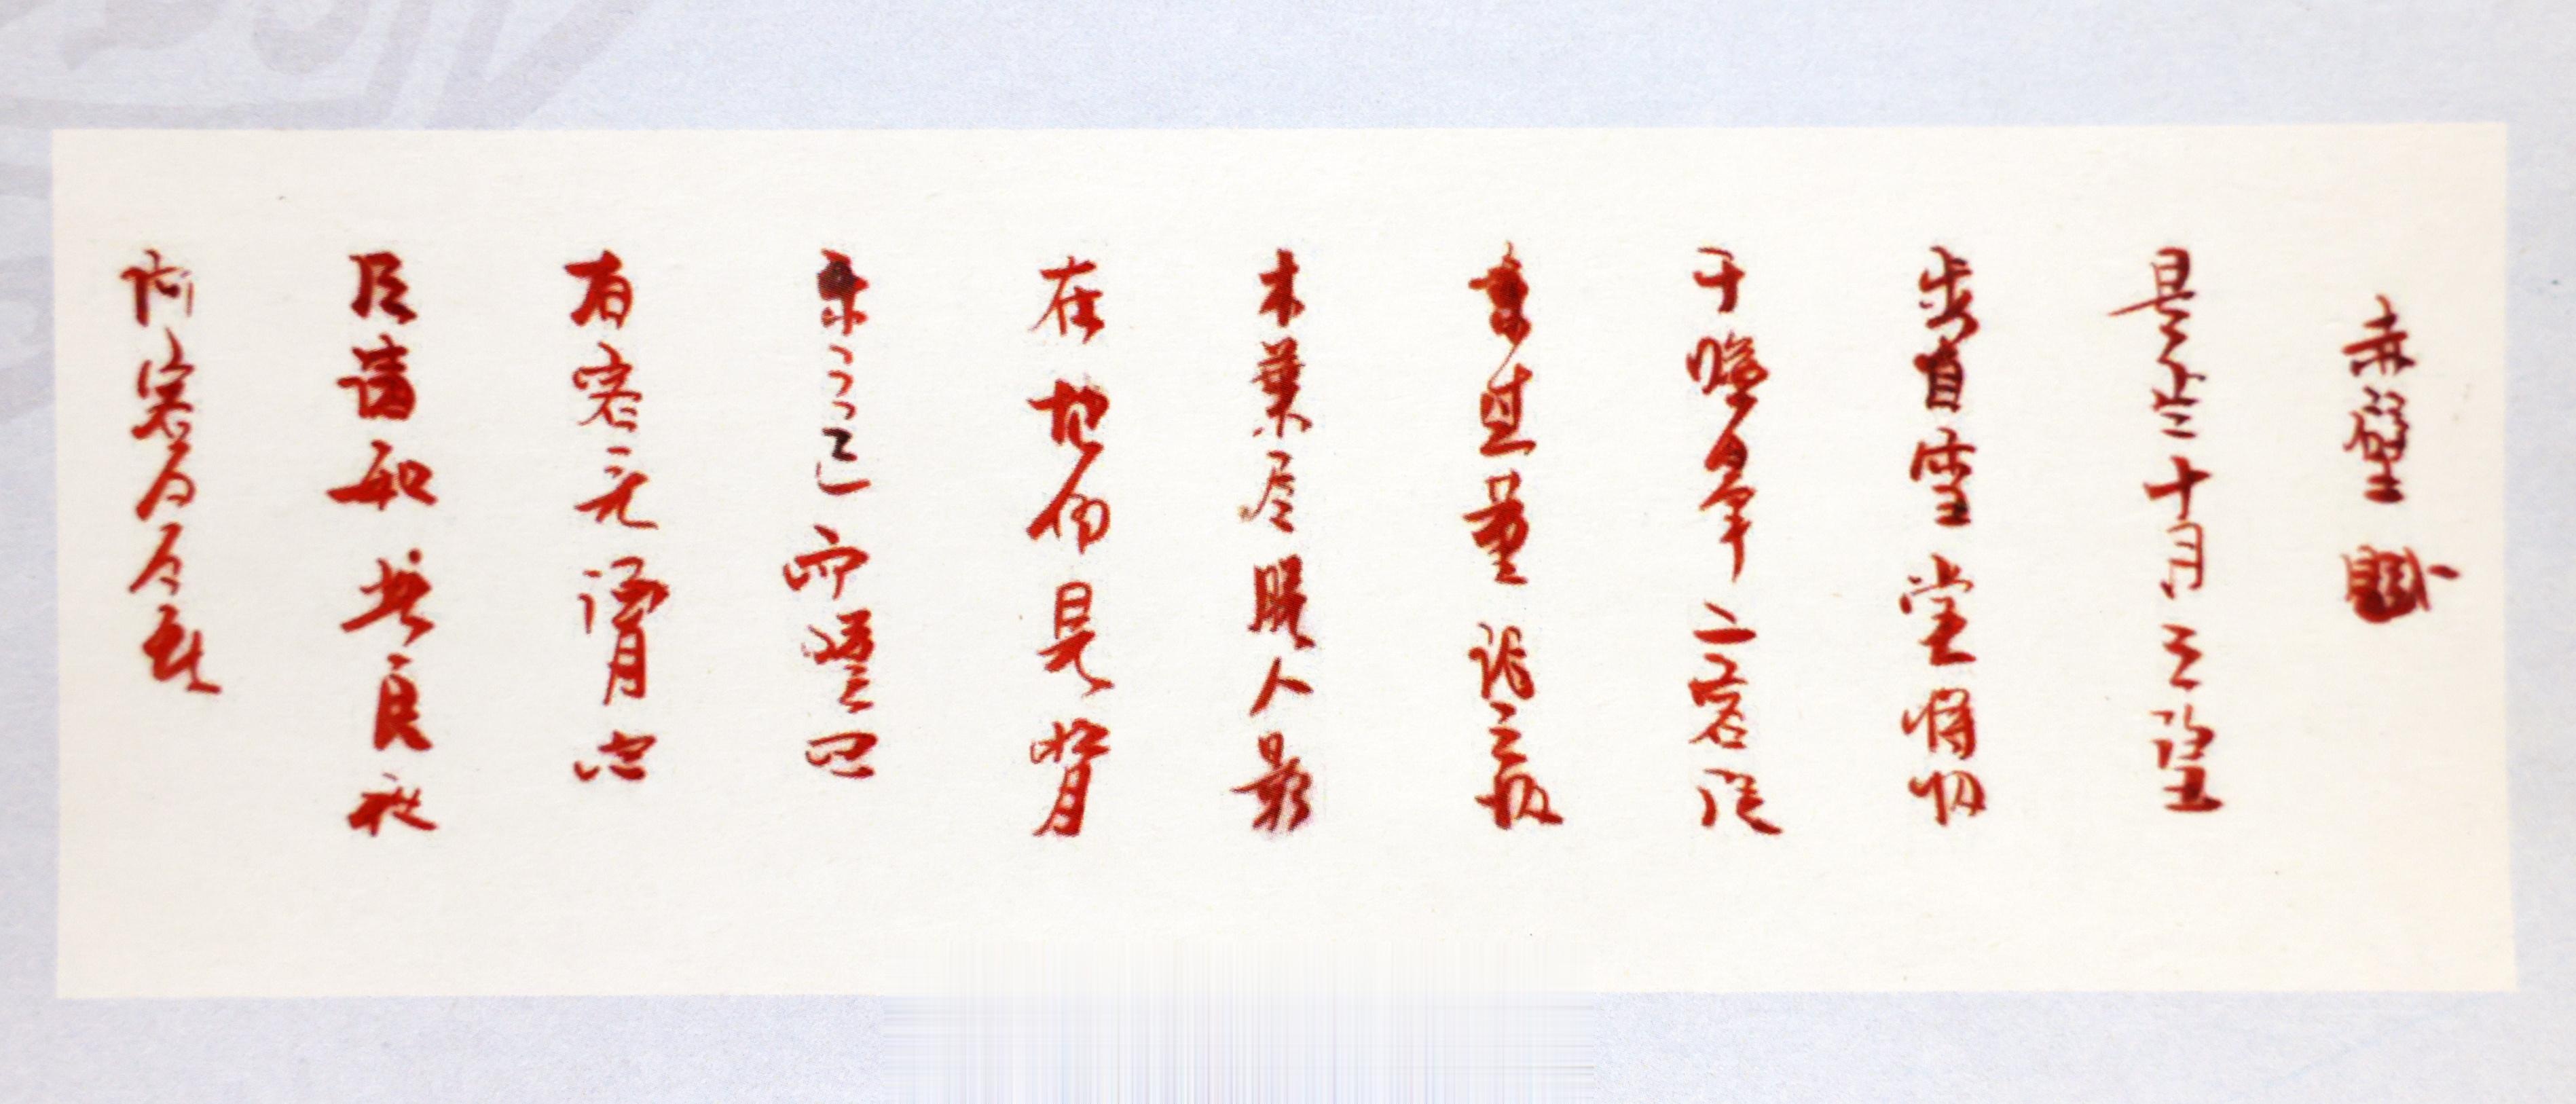 赤壁賦
是歲十月之望
步自雪堂將歸
于臨皋二客從
過黃泥之坂
木葉盡脫人影
在地仰見
之已而嘆曰
有客无酒
如此良夜
何客曰今